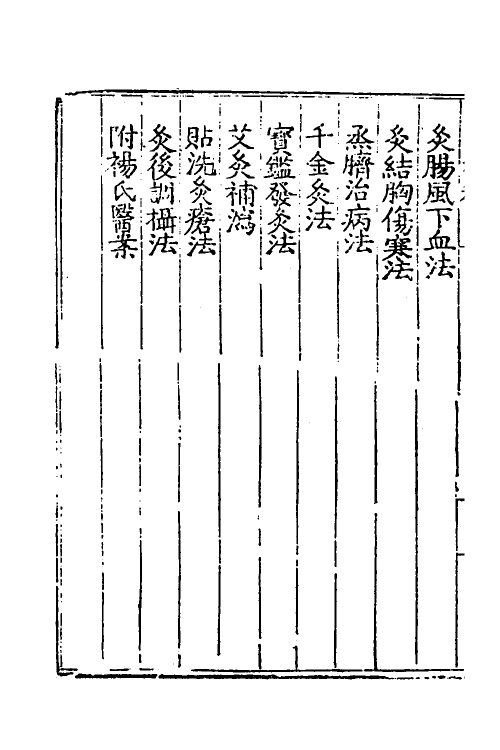 灸腸風下血法
灸結胸傷寒法
烝臍治病法
千金灸法
寳鑑發灸法
艾灸補瀉
貼洗灸瘡法
灸後調攝法
附楊氏醫案